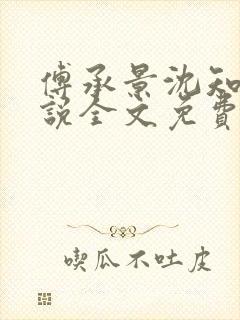 傅承景沈知
說全文免費
喫瓜不吐皮